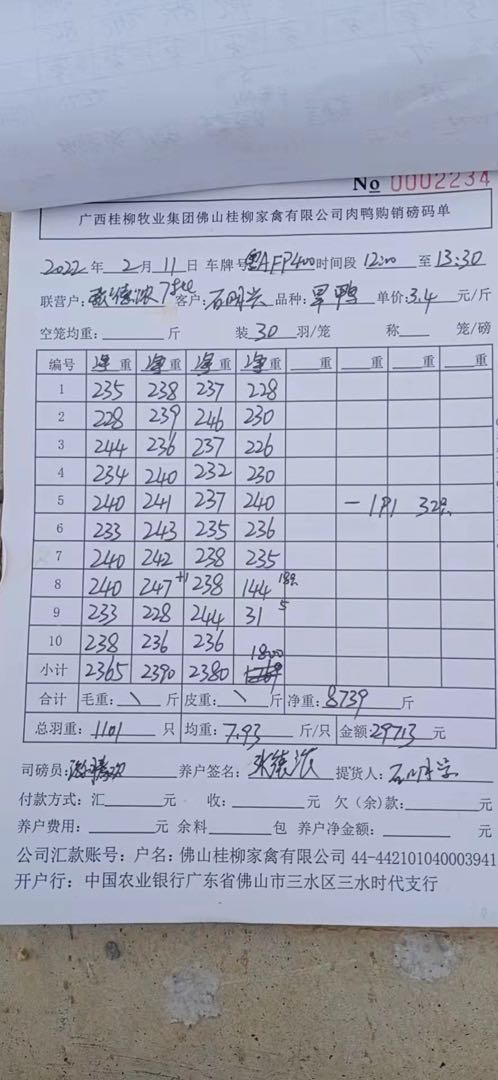 No 0002234
广西桂柳牧业集团佛山桂柳家禽有限公司肉鸭购销磅码单
2022年2月11日 车牌号粤AFP400时间段12:00至13:30
联营户: 客户:石明兴 品种:旱鸭 单价:3.4元/斤
空笼均重: 斤 装30羽/笼 称 笼/磅
编号 净重 净重 净重 净重 重 重 重 重
1 235 238 237 228
2 228 239 246 230
3 244 236 237 226
4 234 240 232 230
5 240 241 237 240 一 32只
6 233 243 235 236
7 240 242 238 235
8 240 247 +1 238 144 18只
9 233 228 244 31 5
10 238 236 236
小计 2365 2390 2380 1800
合计 毛重:\斤 皮重:\斤 净重:8739斤
总羽重:1101只 均重:7.93斤/只 金额:29713元
司磅员: 养户签名: 提货人:石明兴
付款方式:汇 元 收: 元 欠(余)款: 元
养户费用: 元 余料 包 养户净金额: 元
公司汇款账号:户名:佛山桂柳家禽有限公司 44-442101040003941
开户行:中国农业银行广东省佛山市三水区三水时代支行